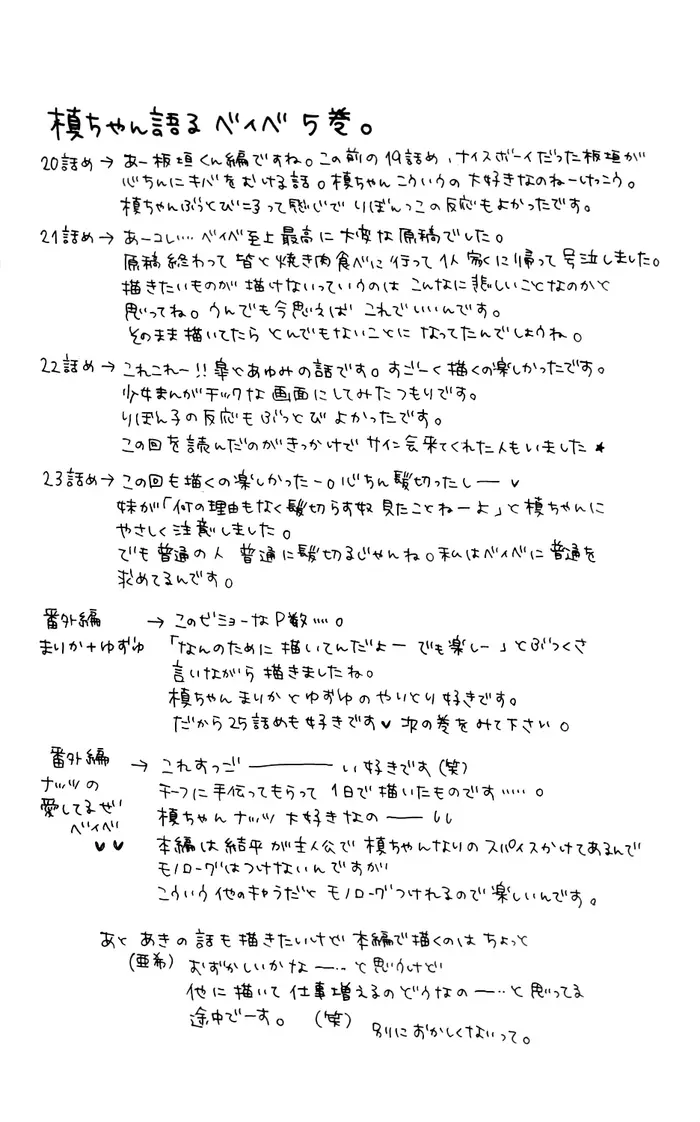 槙ちゃん語る ベイベ 5巻。
20話め→ あー板垣くん編ですね。この前の19話め、ナイスボーイだった板垣が
心ちんにキバをむける話。槙ちゃんこういうの大好きなのねーけっこう。
槙ちゃんぶっとびころって感じで りぼんっこの反応もよかったです。
21話め→ あーコレ…ベイベ至上最高に大変な原稿でした。
原稿終わって 皆と焼き肉食べに行って 1人家に帰って 号泣しました。
描きたいものが 描けないっていうのは こんなに悲しいことなのかと
思ってね。うんでも今思えば これでいいんです。
そのまま描いてたら とんでもないことに なってたんでしょうね。
22話め→ これこれー!!皐とあゆみの話です。すごーく描くの楽しかったです。
少女まんがチックな画面にしてみたつもりです。
りぼん子の反応も ぶっとび よかったです。
この回を読んだのがきっかけで サイン会来てくれた人もいました★
23話め→ この回も描くの楽しかったー。心ちん髪切ったしー♥
妹が「何の理由もなく髪切らす奴 見たことねーよ」と槙ちゃんに
やさしく注意しました。
でも普通の人 普通に髪切るじゃんね。私はベイベに普通を
求めてるんです。
番外編 まりか+ゆずゆ → このビミョーなP数….。
「なんのために描いてんだよー でも楽しー」とぶつくさ
言いながら 描きましたね。
槙ちゃん まりかとゆずゆのやりとり好きです。
だから25話めも好きです♥ 次の巻をみて下さい。
番外編 ナッツの愛してるぜベイベ♥♥ → これすっご————い好きです(笑)
チーフに手伝ってもらって 1日で描いたものです…..。
槙ちゃんナッツ大好きなの——しし
本編は結平が主人公で 槙ちゃんなりのスパイスかけてあるんで
モノローグはつけないんですが
こういう他のキャラだと モノローグつけれるので 楽しいんです。
あと あきの話も描きたいけど 本編で描くのは ちょっと
(亜希) むずかしいかなー…と思うけど
他に描いて 仕事増えるのどうなのー…と思ってる
途中でーす。(笑) 別におかしくないって。